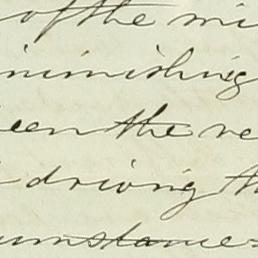 of the mi
inimishing
een the re
driving th
umstance